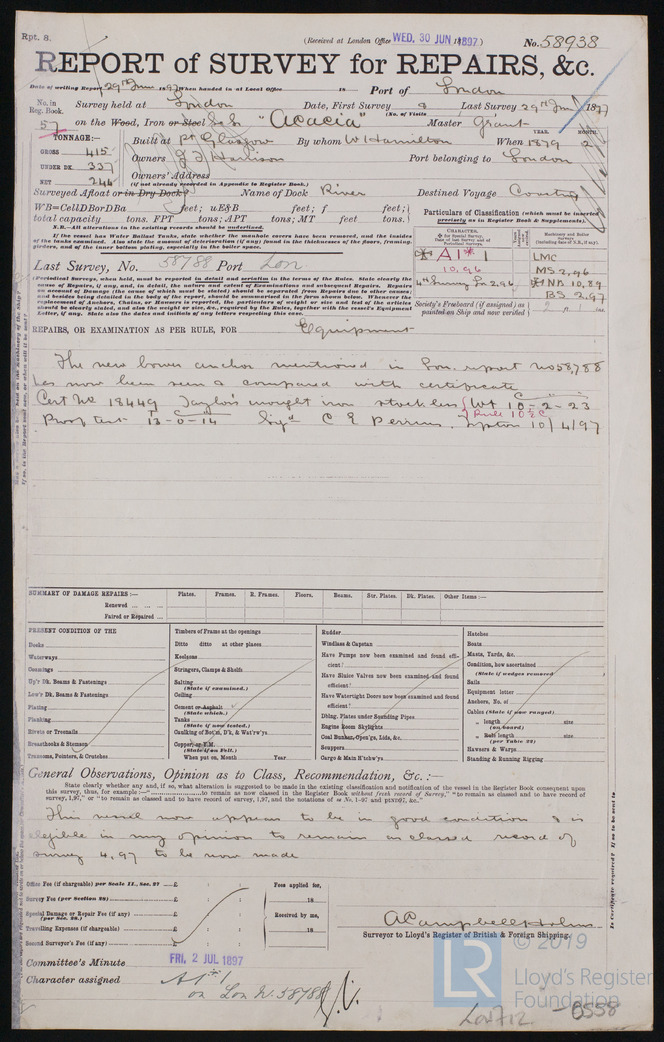 Rpt. 8.
(Received at London Office WED. 30 JUN 1897)
No. 58938
REPORT of SURVEY for REPAIRS, &c.
Date of writing Report 29th June 1897 When handed in at Local Office 18 Port of London
No. in Reg. Book. Survey held at London Date, First Survey Last Survey 29th June 1897
(No. of Visits )
57 on the Wood, Iron or Steel "Acacia" Master Grant
TONNAGE:— YEAR. MONTH.
GROSS 415 Built at Pt Glasgow By whom W Hamilton When 1879 2
UNDER DK. 337 Owners Harrison Port belonging to London
NET 244 Owners' Address
(if not already recorded in Appendix to Register Book.)
Surveyed Afloat or in Dry Dock? Name of Dock River Destined Voyage Coasting
WB=CellDBorDBa feet; uE&B feet; f feet;
total capacity tons. FPT tons; APT tons; MT feet tons.
Particulars of Classification (which must be inserted precisely as in Register Book & Supplements).
N.B.—All alterations in the existing records should be underlined.
If the vessel has Water Ballast Tanks, state whether the manhole covers have been removed, and the insides of the tanks examined. Also state the amount of deterioration (if any) found in the thicknesses of the floors, framing, girders, and of the inner bottom plating, especially in the boiler space.
CHARACTER.
Machinery and Boiler Surveys (including Date of N.B., if any).
A1
10,96
LMC
MS 2,96
NB 10,89
BS 2,97
Last Survey, No. 58788 Port Lon
(Periodical Surveys, when held, must be reported in detail and seriatim in the terms of the Rules. State clearly the cause of Repairs, if any, and, in detail, the nature and extent of Examinations and subsequent Repairs. Repairs on account of Damage (the cause of which must be stated) should be separated from Repairs due to other causes; and besides being detailed in the body of the report, should be summarised in the form shown below. Whenever the replacement of Anchors, Chains, or Hawsers is reported, the particulars of weight or size and test of the articles should be clearly stated, and also the weight or size, &c., required by the Rules, together with the vessel's Equipment Letter, if any. State also the dates and initials of any letters respecting this case.
Society's Freeboard (if assigned) as painted on Ship and now verified
REPAIRS, OR EXAMINATION AS PER RULE, FOR Equipment
The new bower anchor mentioned in Lon. report no 58,788
has now been seen & compared with certificate
Cert No 18449 Taylor's wrought iron stockless Wt 10-2-23
Rule 10½ c
Proof test 13-0-14 Sigd C E Perrins. Tipton 10/4/97
SUMMARY OF DAMAGE REPAIRS:— Plates. Frames. R. Frames. Floors. Beams. Str. Plates. Dk. Plates. Other Items:—
Renewed
Faired or Repaired
PRESENT CONDITION OF THE
Decks
Waterways
Coamings
Up'r Dk. Beams & Fastenings
Low'r Dk. Beams & Fastenings
Plating
Planking
Rivets or Treenails
Breasthooks & Stemson
Transoms, Pointers, & Crutches
Timbers of Frame at the openings
Ditto ditto at other places
Keelsons
Stringers, Clamps & Shelfs
Salting
(State if examined.)
Ceiling
Cement or Asphalt
(State which.)
Tanks
(State if now tested.)
Caulking of Bot'm, D'k, & Wat'rw'ys
Copper, or Y.M.
(State if on Felt.)
When put on, Month Year
Rudder
Windlass & Capstan
Have Pumps now been examined and found efficient?
Have Sluice Valves now been examined and found efficient?
Have Watertight Doors now been examined and found efficient?
Dblng. Plates under Sounding Pipes
Engine Room Skylights
Coal Bunker, Open'gs, Lids, &c.
Scuppers
Cargo & Main H'tchw'ys
Hatches
Boats
Masts, Yards, &c.
Condition, how ascertained
(State if wedges removed )
Sails
Equipment letter
Anchors, No. of
Cables (State if now ranged)
„ length size
(on board)
„ Rule length size
(per Table 22)
Hawsers & Warps
Standing & Running Rigging
General Observations, Opinion as to Class, Recommendation, &c. :—
State clearly whether any and, if so, what alteration is suggested to be made in the existing classification and notification of the vessel in the Register Book consequent upon this survey, thus, for example:—" to remain as now classed in the Register Book without fresh record of Survey," "to remain as classed and to have record of survey, 1,97," or "to remain as classed and to have record of survey, 1,97, and the notations of ss No. 1-97 and ptND97, &c."
This vessel now appears to be in good condition & is
eligible in my opinion to remain as classed record of
survey 4.97 to be now made
Office Fee (if chargeable) per Scale II., Sec. 27 £
Survey Fee (per Section 28) £
Special Damage or Repair Fee (if any) £
(per Sec. 28.)
Travelling Expenses (if chargeable) £
Second Surveyor's Fee (if any) £
Fees applied for,
18
Received by me,
18
A Campbell Holms
Surveyor to Lloyd's Register of British & Foreign Shipping.
Committee's Minute FRI. 2 JUL 1897
Character assigned A1
on Lon No. 58788
© 2019
LR
Lloyd's Register
Foundation
Lon 712 - 0558